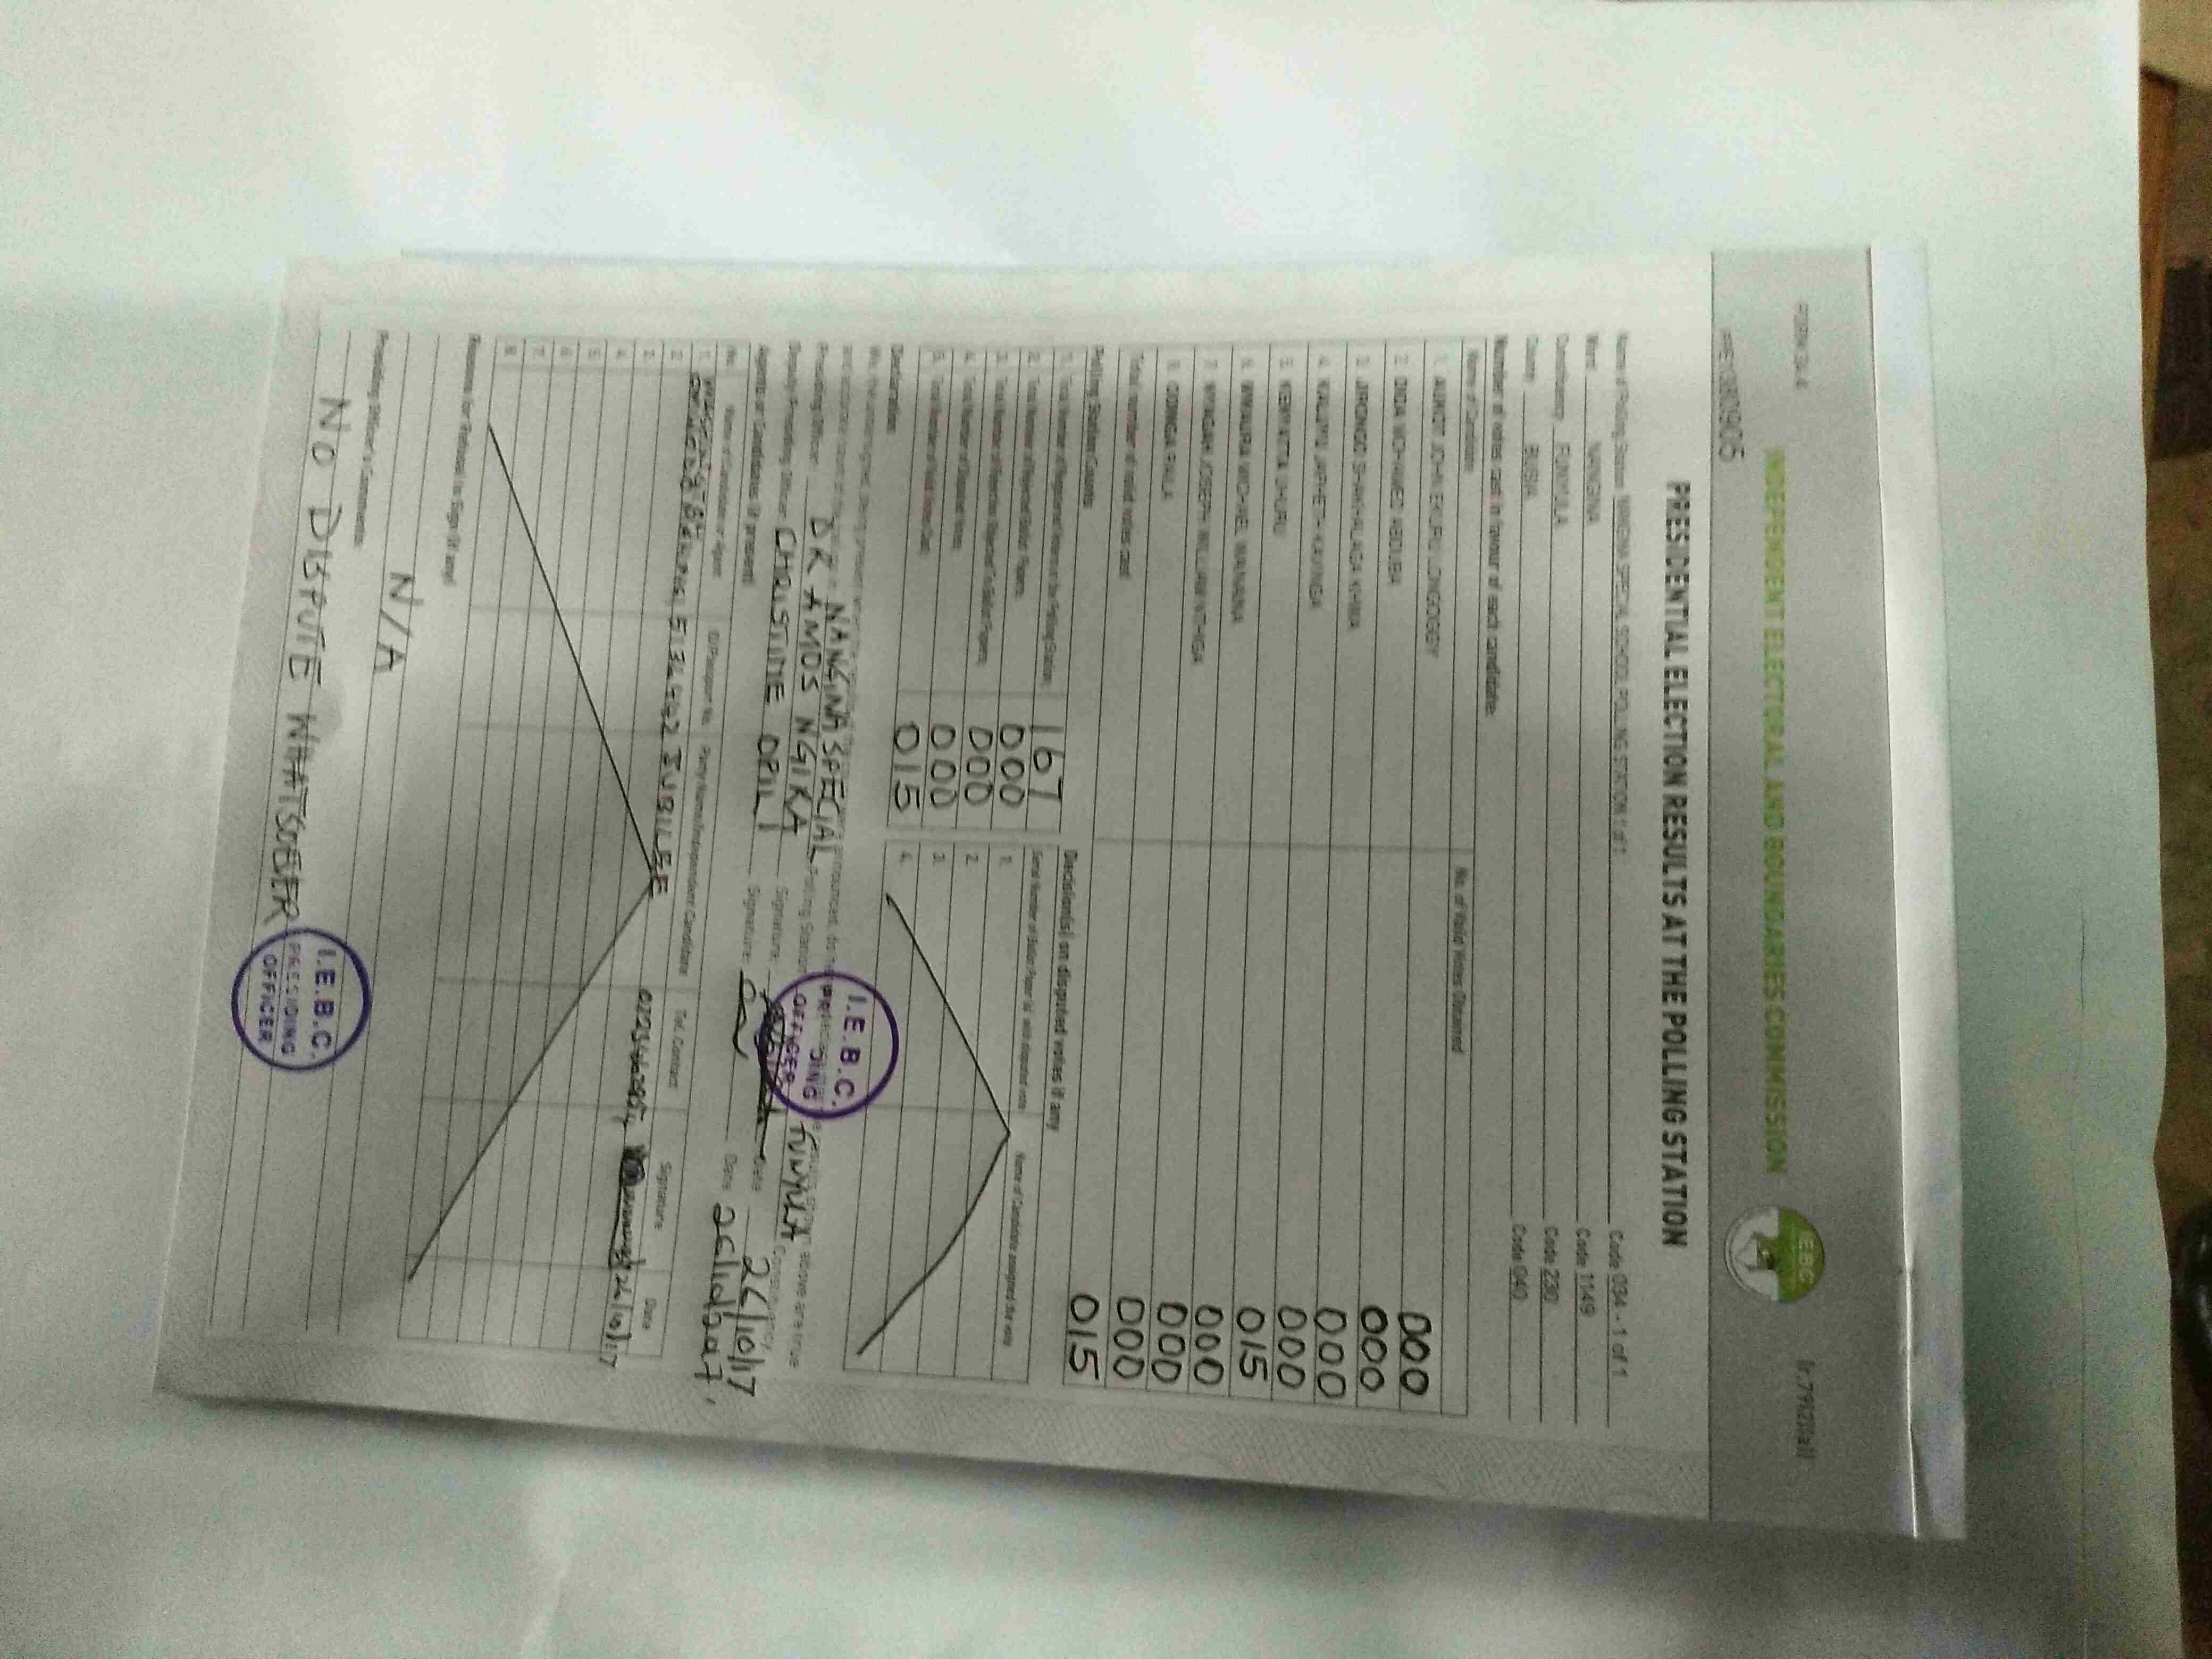 FORM 34 A
INDEPENDENT ELECTORAL AND BOUNDARIES COMMISSION
IEBC
PRESIDENTIAL ELECTION RESULTS AT THE POLLING STATION
Name of Polling Station NANGINA SPECIAL SCHOOL POLLING STATION 1 of 1 Code 034 - 1 of 1
Ward NANGINA Code 1149
Constituency FUNYULA Code 230
County BUSIA Code 040
Number of votes cast in favour of each candidate:
Name of Candidate No. of Valid Votes Obtained
1. AUKOT JOHN EKURU LONGOGGY 000
2. DIDA MOHAMED ABDUBA 000
3. JIRONGO SHAKHALAGA KHWA 000
4. KALUYU JAPHETH KAVINGA 000
5. KENYATTA UHURU 015
6. MWAURA MICHAEL WAINAINA 000
7. NYAGAH JOSEPH WILLIAM NTHIGA 000
8. ODINGA RAILA 000
Total number of valid votes cast 015
Polling Station Counts Decision(s) on disputed votes if any
1. Total Number of Registered Voters in the Polling Station 167
2. Total Number of Rejected Ballot Papers 000
3. Total Number of Rejection Objected To Ballot Papers 000
4. Total Number of Disputed Votes 000
5. Total Number of Valid Votes Cast 015
Name of Candidate assigned the vote
1.
2.
3.
4.
Declaration
NANGINA SPECIAL Polling Station FUNYULA Constituency
Presiding Officer: DR AMOS NGIRA Signature: Date 26/10/17
Deputy Presiding Officer: CHRISTINE OPILI Signature: Date 26/10/2017
I.E.B.C. PRESIDING OFFICER
Agents or Candidates (if present)
No. Name of Candidate or Agent ID/Passport No. Party Name/Independent Candidate Tel. Contact Signature Date
1. JUBILEE 26/10/17
2.
3.
4.
5.
6.
7.
8.
Reasons for Refusal to Sign (if any)
N/A
Presiding Officer's Comments:
NO DISPUTE WHATSOEVER
I.E.B.C. PRESIDING OFFICER